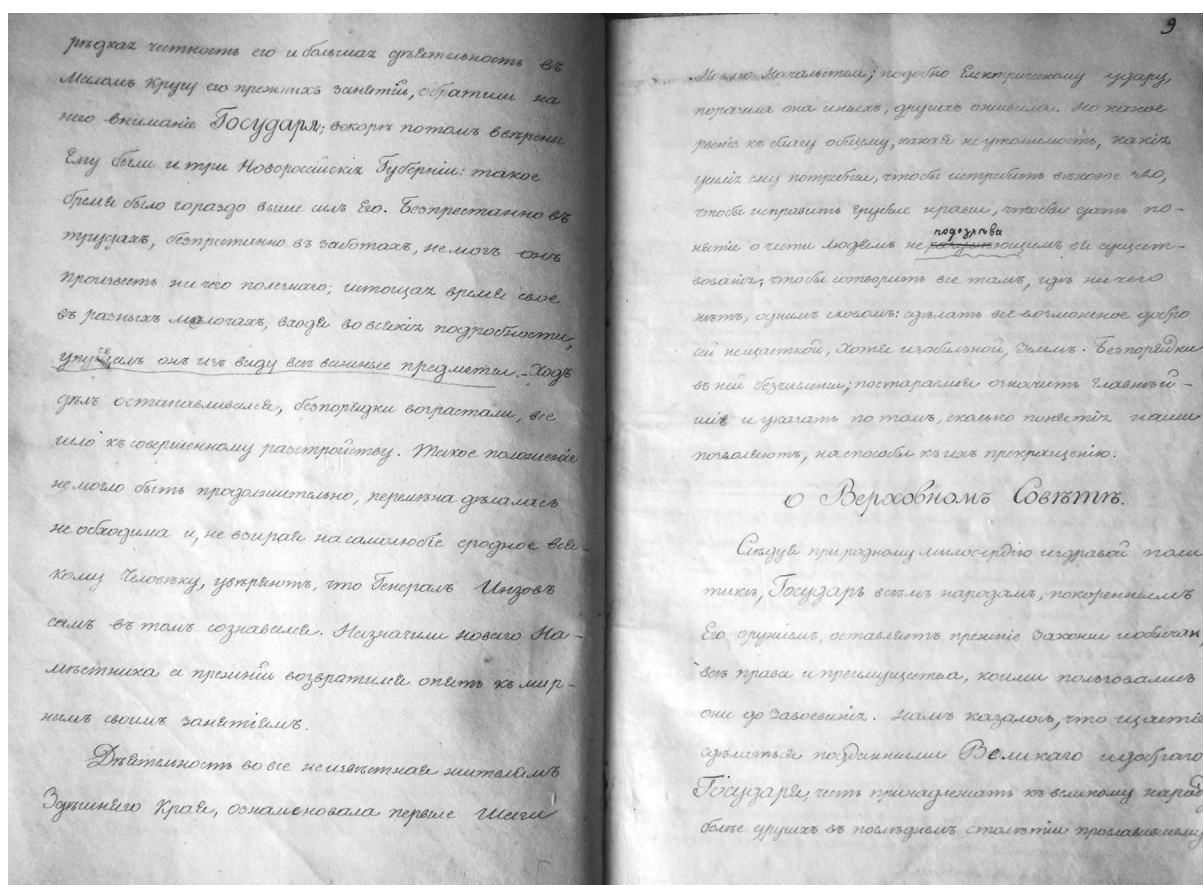 рѣдкая честность его и большая дѣятельность въ
Маломъ кругу его прежнихъ занятій, обратили на
него вниманіе Государя; вскорѣ потомъ ввѣрены
Ему были и три Новороссійскія Губерніи: такое
бремя было гораздо выше силъ Его. Безпрестанно въ
трудахъ, безпрестанно въ заботахъ, не могъ онъ
произвесть ни чего полезнаго; истощая время свое
въ разныхъ мѣлочахъ, входя во всякія подробности,
упускалъ онъ изъ виду всѣ важные предметы. Ходъ
дѣлъ останавливался, безпорядки возрастали, все
шло къ совершенному разстройству. Такое положеніе
не могло быть продолжительно, перемѣна дѣлалась
не обходима и, не взирая на самолюбіе сродное вся-
кому Человѣку, увѣряютъ, что Генералъ Инзовъ
самъ въ томъ сознавался. Назначили новаго На-
мѣстника а прежній возвратился опять къ мир-
нымъ своимъ занятіямъ.
Дѣятельность во все неизвѣстная жителямъ
Здѣшняго Края, ознаменовала первые шаги
9
Новаго Начальства; подобно Електрическому удару,
поразила она иныхъ, другихъ оживила. Но какое
рвеніе къ благу общему, какая неутомимость, какія
усилія ему потребны, чтобы истребить вѣковое зло,
чтобы исправить грубые нравы, чтобы дать по-
подозрѣва
нятіе о чести людямъ не ющимъ ея сущест-
вованія, чтобы сотворить все тамъ, гдѣ ни чего
нѣтъ, однимъ словомъ: сдѣлать все возможное добро
сей нещастной, хотя изобильной, Землѣ. Безпорядки
въ ней безчисленны; постараемся означить главнѣй-
шіе и указать потомъ, сколько понятія наши
позволяютъ, на способы къ ихъ прекращенію.
О Верховномъ Совѣтѣ.
Слѣдуя природному милосердію и здравой поли
тикѣ, Государь всѣмъ народамъ, покореннымъ
Его оружіемъ, оставляетъ прежніе Законы и обычаи,
всѣ права и преимущества, коими пользовались
они до завоеванія. Намъ казалось, что щастіе
сдѣлаться подданными Великаго и добраго
Государя, честь принадлежать къ великому народу
болѣе другихъ въ послѣднемъ столѣтіи прославившемуся